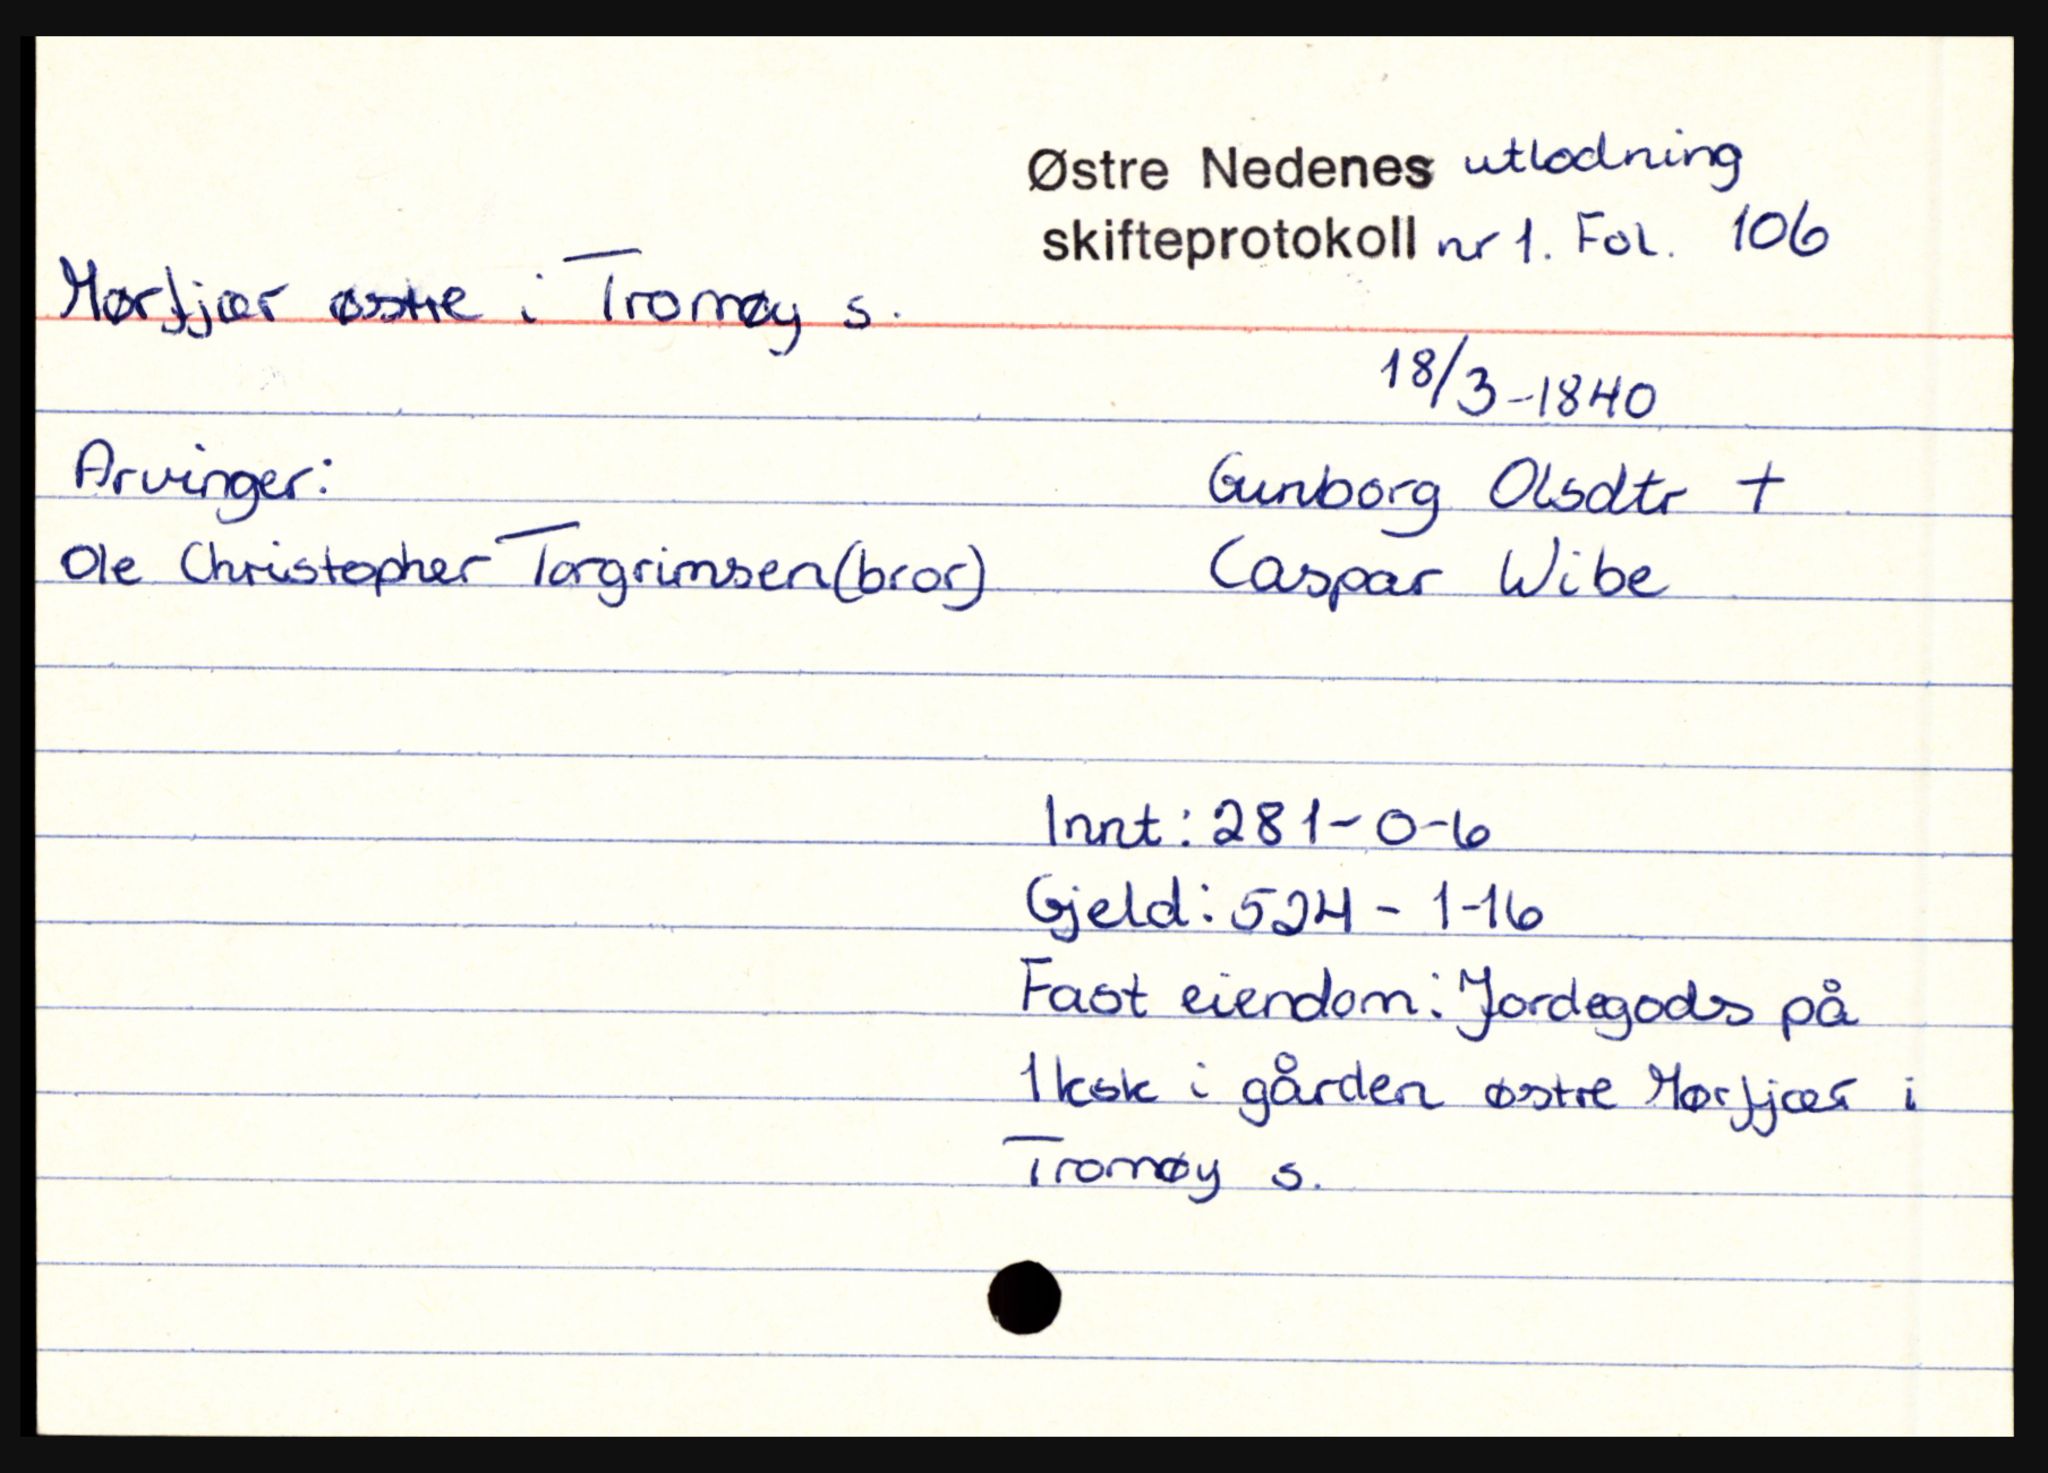 Østre Nedenes utlodning
skifteprotokoll nr 1. Fol. 106
Mørfjær østre i Tromøy s.
18/3-1840
Arvinger:
Gunborg Olsdtr +
Ole Christopher Torgrimsen (bror)
Caspar Wibe
Innt: 281-0-6
Gjeld: 524-1-16
Fast eiendom: Jordegods på
1 ksk i gården østre Mørfjær i
Tromøy s.